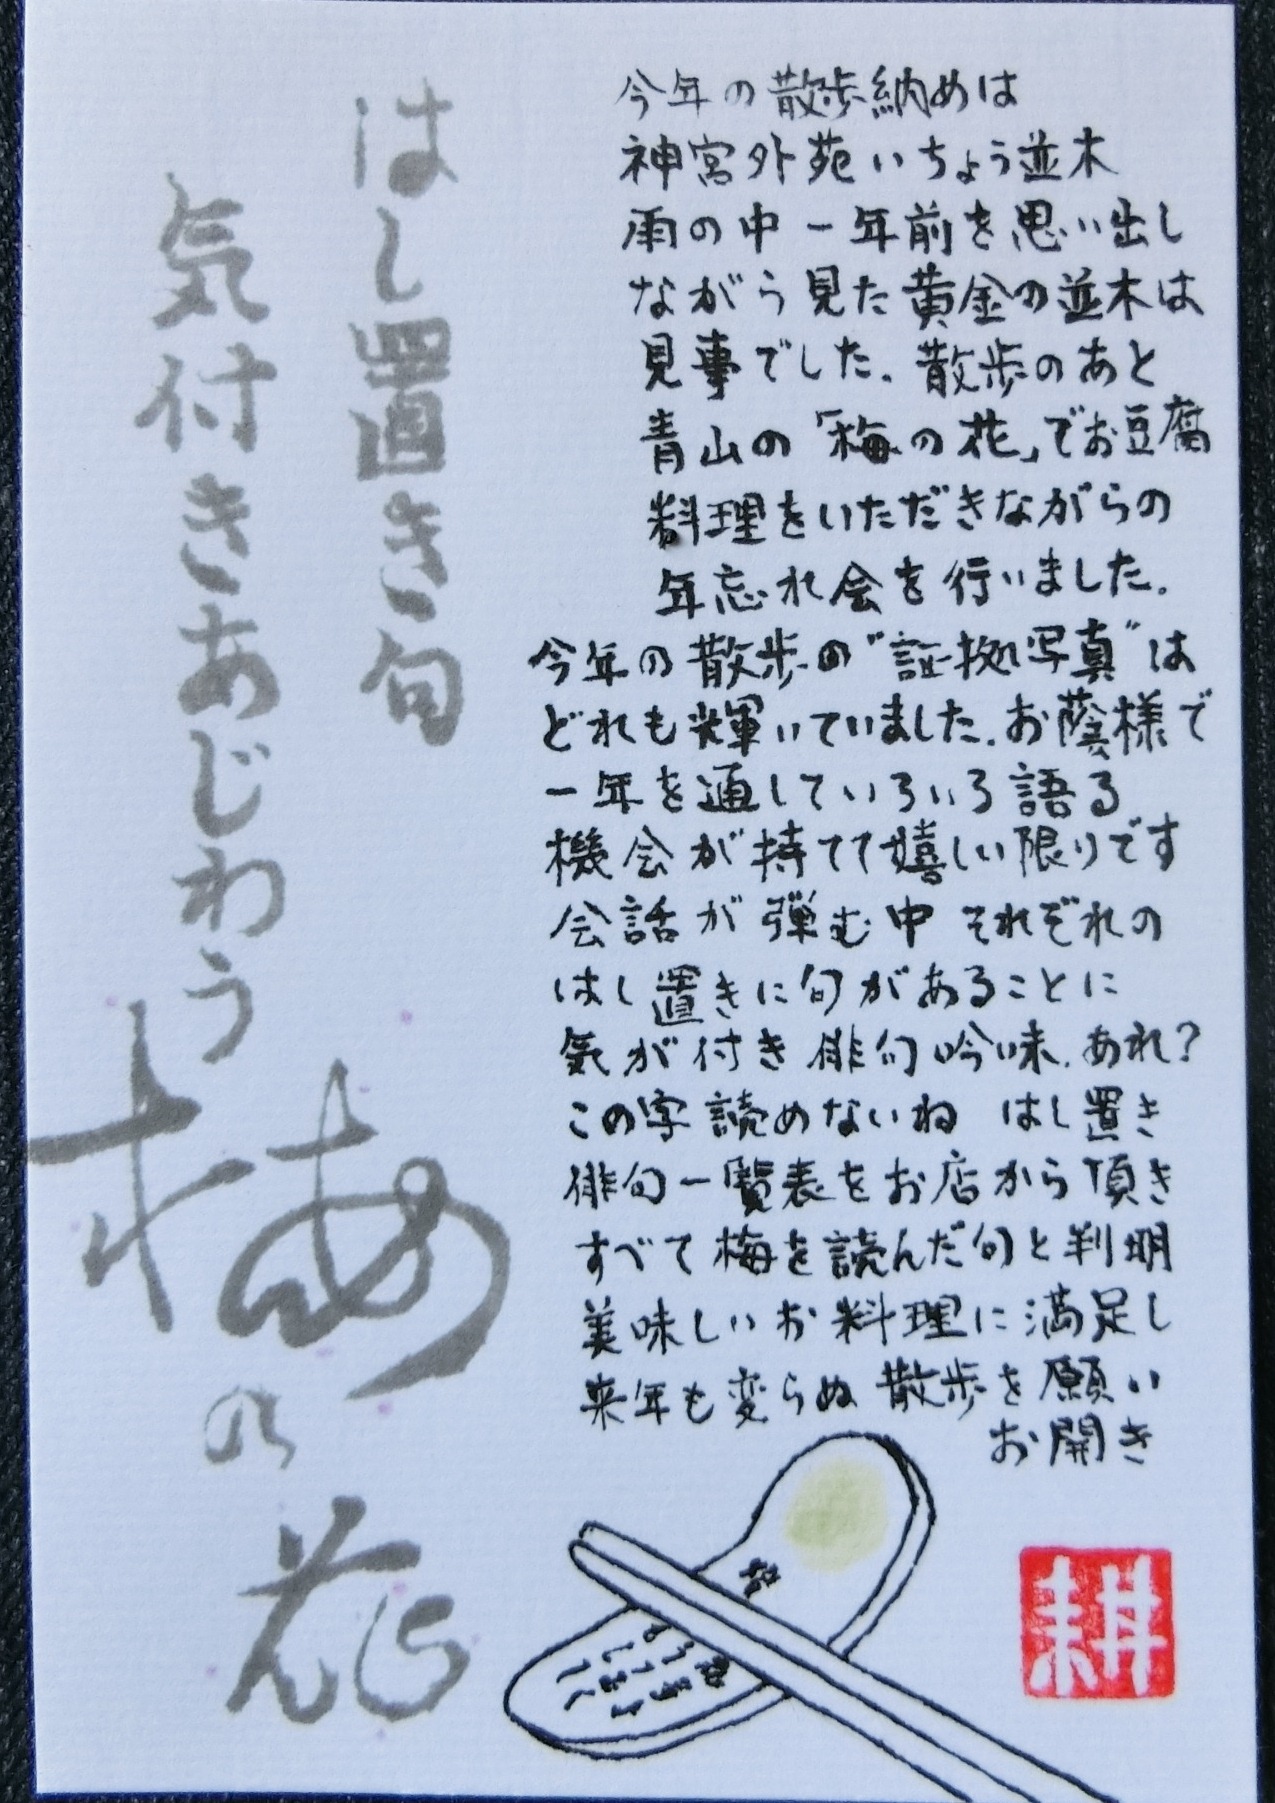 はし置き句
気付きあじわう
梅の花
今年の散歩納めは
神宮外苑いちょう並木
雨の中一年前を思い出し
ながら見た黄金の並木は
見事でした。散歩のあと
青山の「梅の花」でお豆腐
料理をいただきながらの
年忘れ会を行いました。
今年の散歩の"証拠写真"は
どれも輝いていました。お蔭様で
一年を通していろいろ語る
機会が持てて嬉しい限りです
会話が弾む中 それぞれの
はし置きに句があることに
気が付き俳句吟味。あれ?
この字読めないね はし置き
俳句一覧表をお店から頂き
すべて梅を読んだ句と判明
美味しいお料理に満足し
来年も変らぬ散歩を願い
お開き
耕